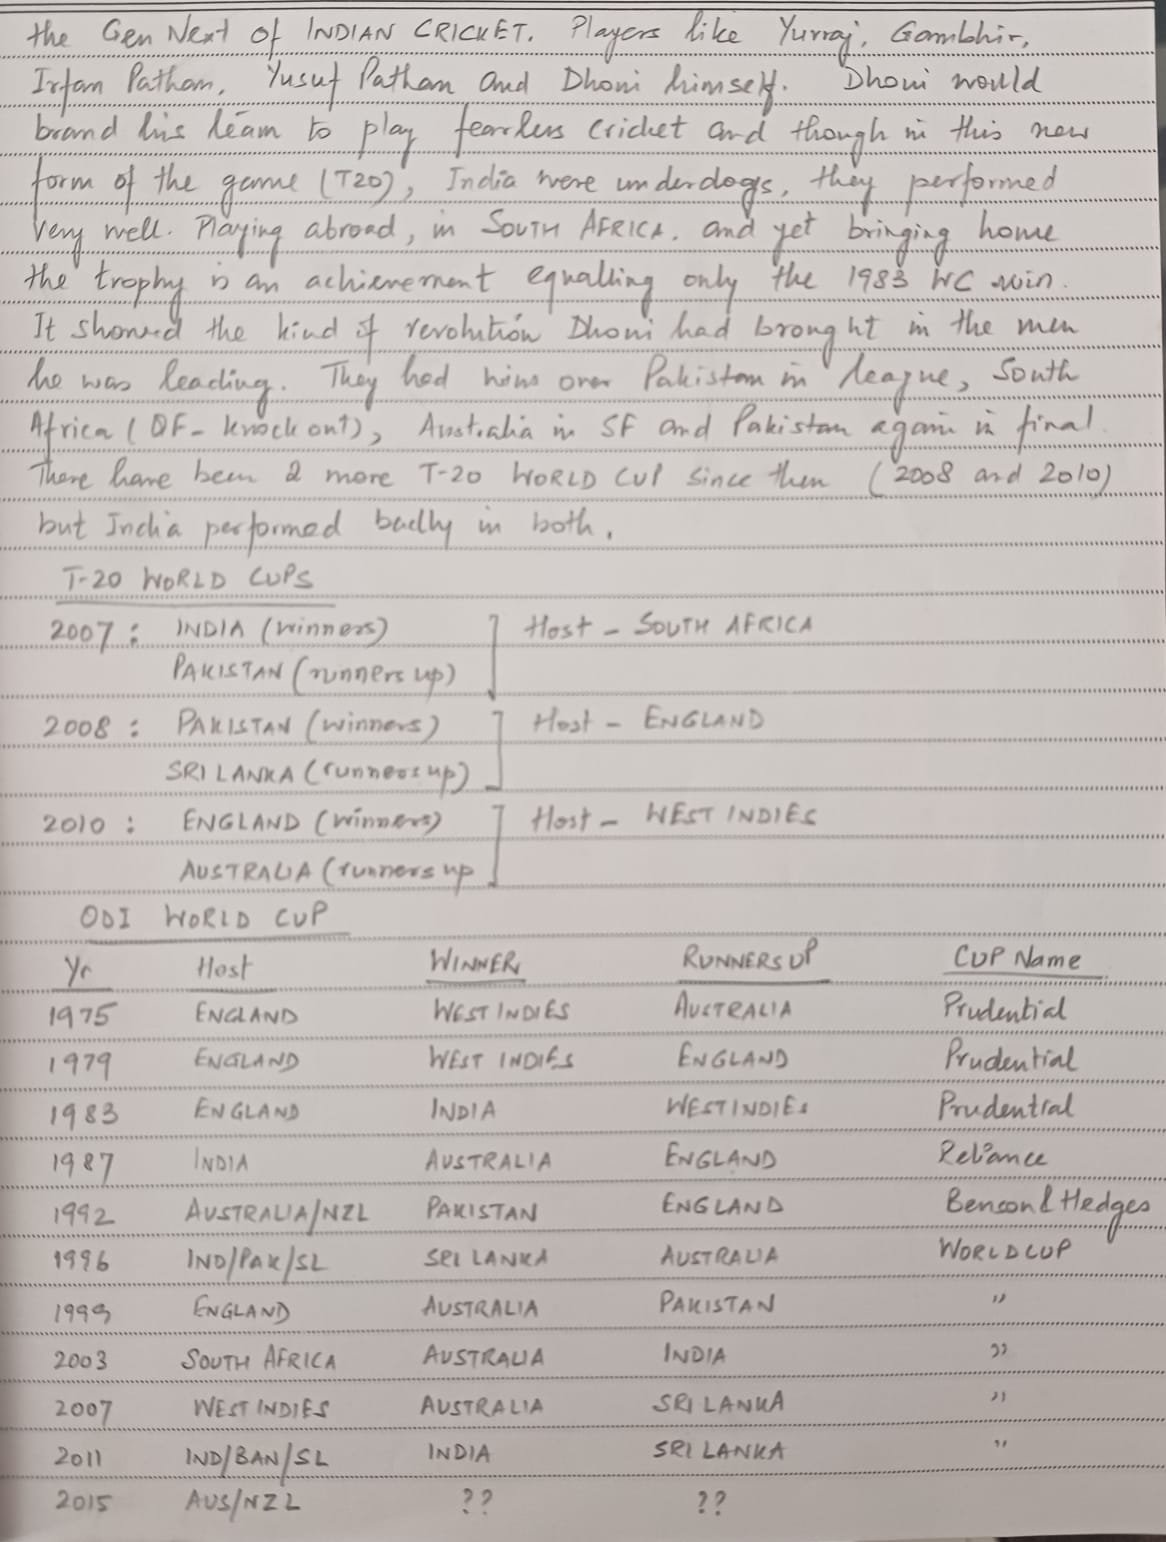 the Gen Next of INDIAN CRICKET. Players like Yuvraj, Gambhir,
Irfan Pathan, Yusuf Pathan and Dhoni himself. Dhoni would
brand his team to play fearless cricket and though in this new
form of the game (T20), India were underdogs, they performed
very well. Playing abroad, in SOUTH AFRICA, and yet bringing home
the trophy is an achievement equalling only the 1983 WC win.
It showed the kind of revolution Dhoni had brought in the men
he was leading. They had wins over Pakistan in league, South
Africa (QF - knock out), Australia in SF and Pakistan again in final.
There have been 2 more T-20 WORLD CUP since then (2008 and 2010)
but India performed badly in both.
T-20 WORLD CUPS
2007 : INDIA (winners) Host - SOUTH AFRICA
PAKISTAN (runners up)
2008 : PAKISTAN (winners) Host - ENGLAND
SRI LANKA (runners up)
2010 : ENGLAND (winners) Host - WEST INDIES
AUSTRALIA (runners up
ODI WORLD CUP
Yr Host WINNER RUNNERS UP CUP Name
1975 ENGLAND WEST INDIES AUSTRALIA Prudential
1979 ENGLAND WEST INDIES ENGLAND Prudential
1983 ENGLAND INDIA WEST INDIES Prudential
1987 INDIA AUSTRALIA ENGLAND Reliance
1992 AUSTRALIA/NZL PAKISTAN ENGLAND Benson & Hedges
1996 IND/PAK/SL SRI LANKA AUSTRALIA WORLD CUP
1999 ENGLAND AUSTRALIA PAKISTAN "
2003 SOUTH AFRICA AUSTRALIA INDIA "
2007 WEST INDIES AUSTRALIA SRI LANKA "
2011 IND/BAN/SL INDIA SRI LANKA "
2015 AUS/NZL ?? ??